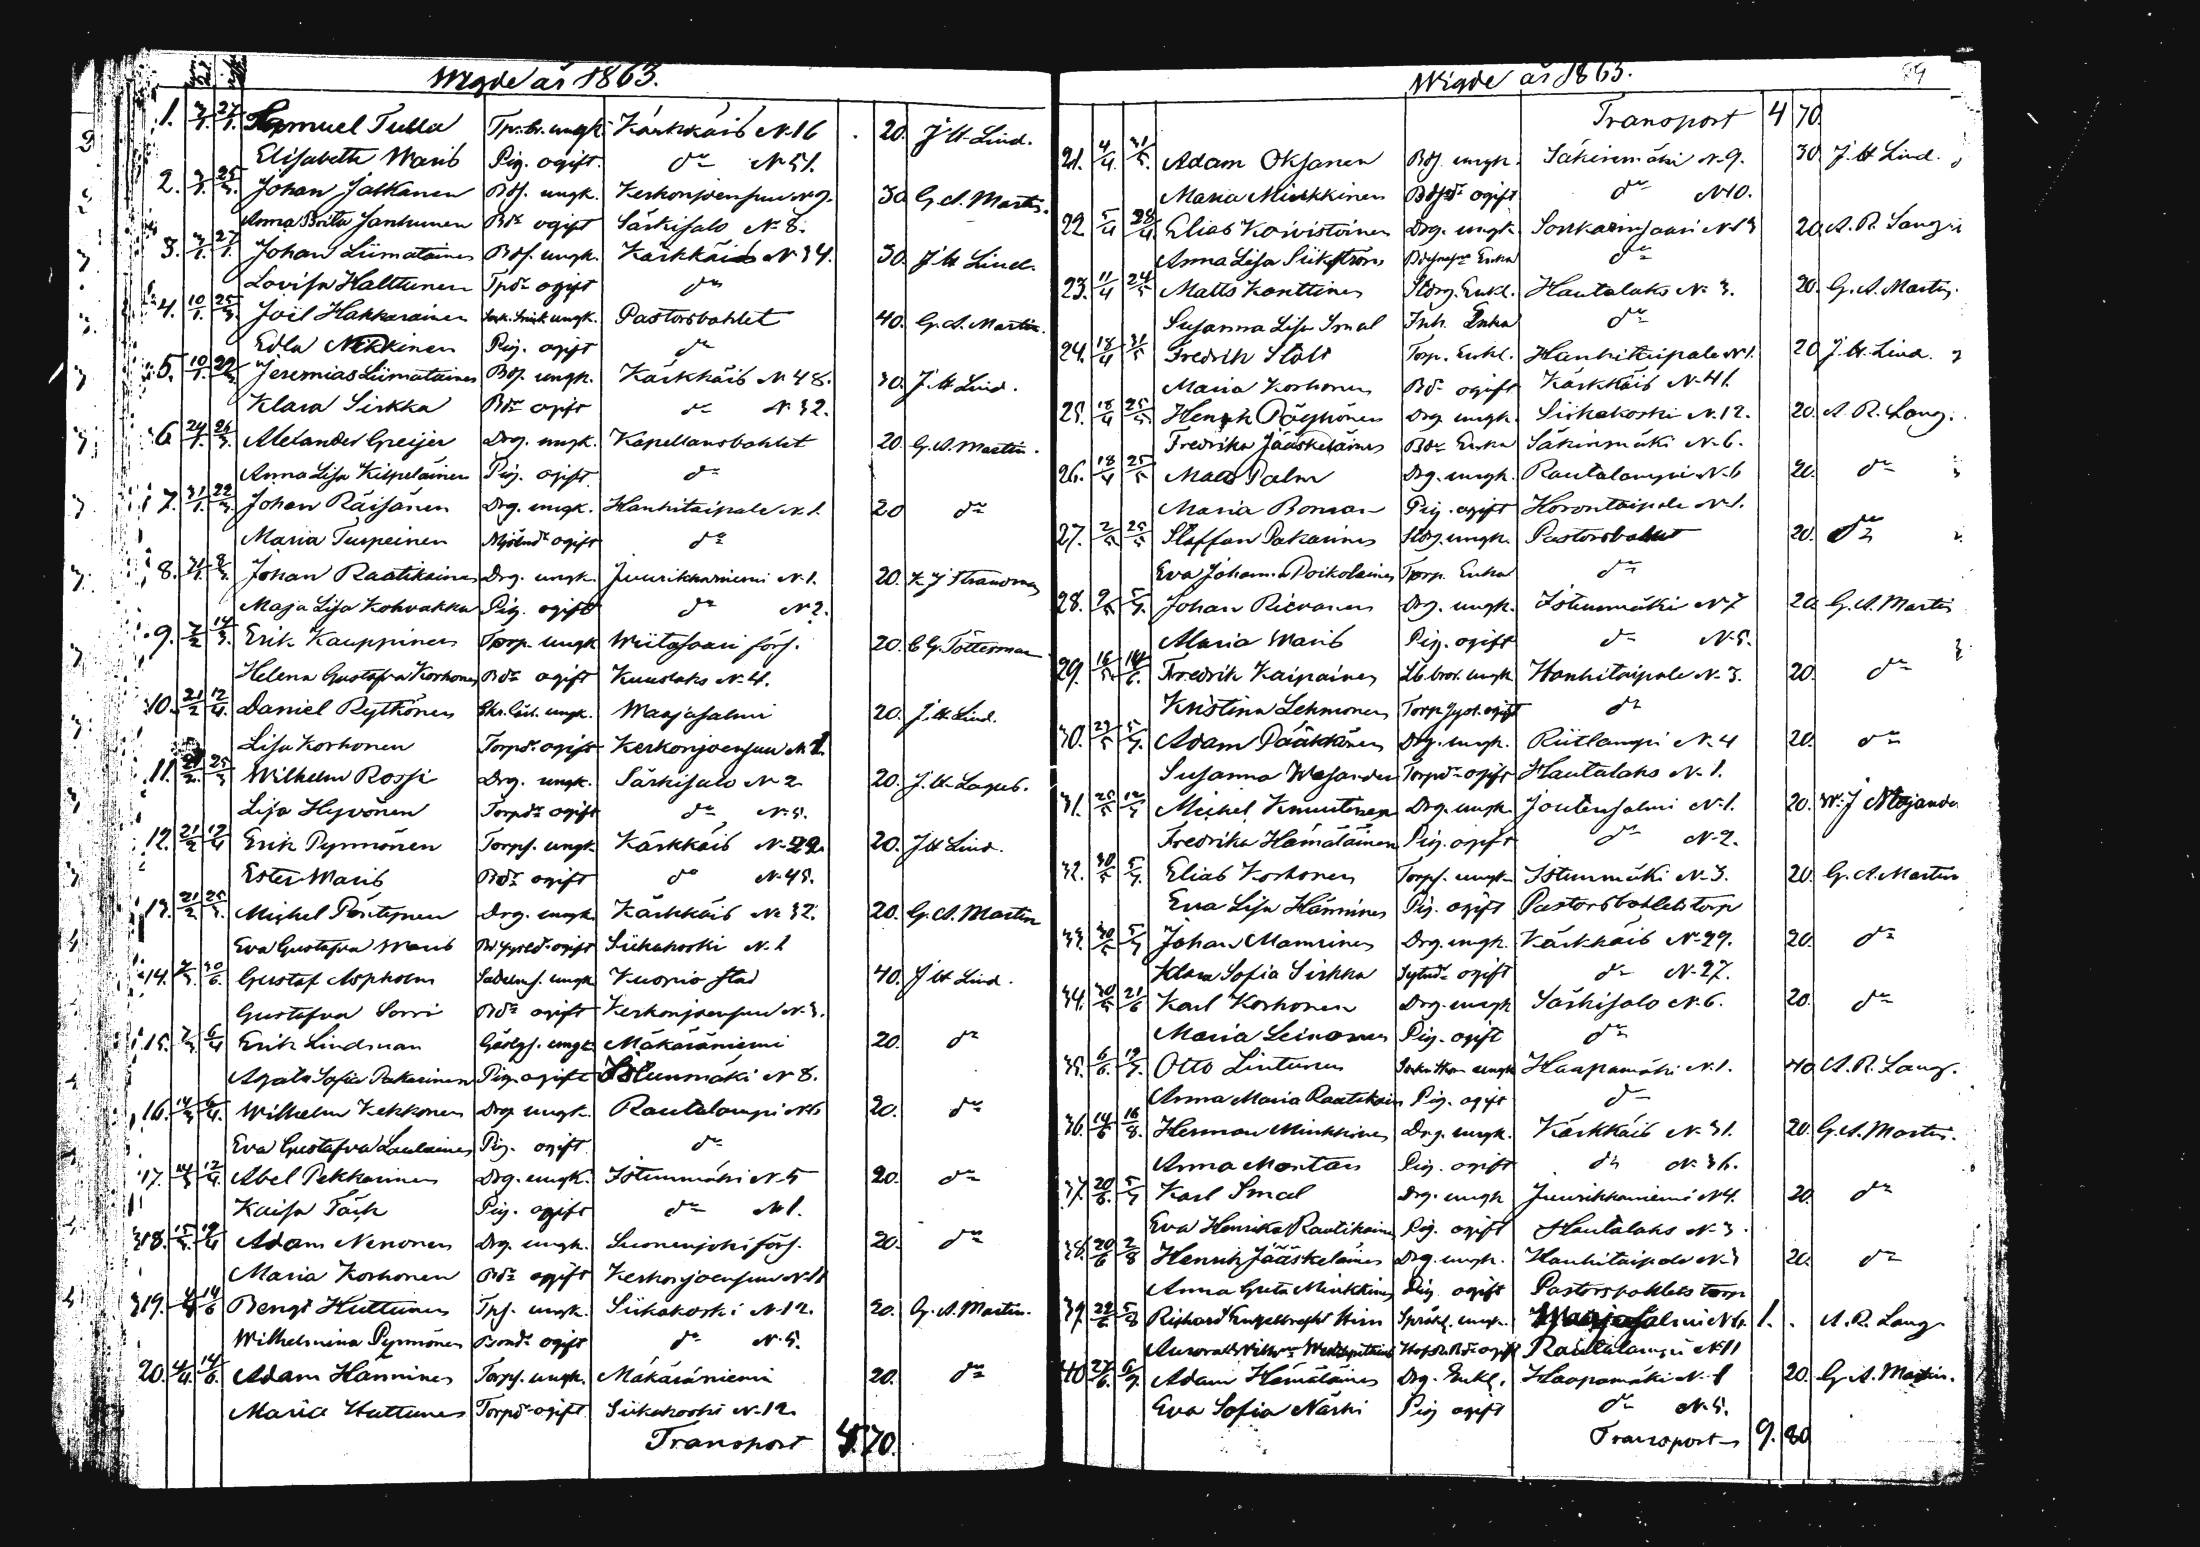 Wigde år 1863.
1. 3/1. 27/1. Samuel Tulla Tp.br. ungk. Kärkkäis N. 16 20. J. H. Lind.
Elisabeth Waris Pig. ogift. do N. 51.
2. 25/3. Johan Jalkanen Bdf. ungk. Kerkonjoensuu N. 9. 30 G. A. Martin.
Anna Brita Janhunen Bdr ogift Särkisalo N. 8.
3. 27/1. Johan Liimatainen Bdf. ungk. Kärkkäis N. 34. 30. J. H. Lind.
Lovisa Halttunen Tpdr ogift do
4. 10/1. 25/3. Joil Hakkarainen ungk. Pastorsbohlet 40. G. A. Martin.
Edla Nikkinen Pig. ogift do
5. 10/1. Jeremias Liimatainen Bdf. ungk. Kärkkäis N. 48. 30. J. H. Lind.
Klara Sirkka Bdr ogift do N. 32.
6. 24/1. 26/3. Alexander Greijer Drg. ungk. Kapellansbohlet 20. G. A. Martin.
Anna Lisa Kilpeläinen Pig. ogift do
7. 31/1. 22/3. Johan Räisänen Drg. ungk. Hanhitaipale N. 1. 20 do
Maria Turpeinen Mjölnd. ogift do
8. 31/1. Johan Raatikainen Drg. ungk. Juurikkaniemi N. 1. 20. K. J. Strandman
Maja Lisa Kohvakka Pig. ogift do N. 2.
9. 7/2 14/3. Erik Kauppinen Torp. ungk. Wiitasaari förs. 20. C. G. Tötterman
Helena Gustafva Korhonen Bdr ogift Kuuslaks N. 4.
10. 21/2 12/4. Daniel Rytkönen ungk. Marjasalmi 20. J. H. Lind.
Lisa Korhonen Torpdr ogift Kerkonjoensuu N. 1
11. 21/2. 25/3 Wilhelm Rossi Drg. ungk. Särkisalo N. 2 20. J. H. Lagus.
Lisa Hyvönen Torpdr ogift do N. 5.
12. 21/2 12/4 Erik Pynnönen Torpf. ungk. Kärkkäis N. 22. 20. J. H. Lind.
Ester Waris Bdr ogift do N. 45.
13. 21/2 25/3. Mickel Pöntynen Drg. ungk. Kärkkäis N. 32. 20. G. A. Martin
Eva Gustafva Waris ogift Siikakoski N. 1
14. 30/6. Gustaf Aspholm Sadelm.f. ungk. Kuopio stad 40. J. H. Lind.
Gustafva Sorri Bdr ogift Kerkonjoensuu N. 3.
15. 6/4 Erik Lindman ungk Mäkäräniemi 20. do
Agata Sofia Pakarinen Pig. ogift Istunmäki N. 8.
16. 14/3 6/4. Wilhelm Kekkonen Drg. ungk. Rautalampi N. 6 20. do
Eva Gustafva Laulainen Pig. ogift do
17. 14/3 12/4. Abel Pekkarinen Drg. ungk. Istunmäki N. 5 20. do
Kaisa Täck Pig. ogift do N. 1.
18. 15/3. 12/4 Adam Nenonen Drg. ungk. Suonenjoki förs. 20. do
Maria Korhonen Bdr ogift Kerkonjoensuu N. 11
19. 14/6 Bengt Huttunen Tpf. ungk. Siikakoski N. 12. 20. G. A. Martin.
Wilhelmina Pynnönen Bondr ogift do N. 5.
20. 4/4. 14/6. Adam Hänninen Torpf. ungk. Mäkäräniemi 20. do
Maria Huttunen Torpdr ogift Siikakoski N. 12
Transport 4. 70.
Wigde år 1863.
Transport 4 70
21. 4/4. 31/5. Adam Oksanen Bdf. ungk. Säkinmäki N. 9. 30. J. H. Lind.
Maria Minkkinen Bdfdr ogift do N. 10.
22 5/4 28/4. Elias Koivistoinen Drg. ungk. Sonkarinsaari N. 13 20. A. R. Lang.
Anna Lisa Sirkström Enka do
23. 11/4 24/5 Matts Konttinen Stdrg. Enkl. Hautalaks N. 3. 20. G. A. Martin.
Susanna Lisa Smal Inh. Enka do
24. 18/4 31/5 Fredrik Stolt Torp. Enkl. Hanhitaipale N. 1. 20 J. H. Lind.
Maria Korhonen Bdr ogift Kärkkäis N. 41.
25. 18/4 25/5 Henrik Pöyhönen Drg ungk. Siikakoski N. 12. 20. A. R. Lang.
Fredrika Jääskeläinen Bdr Enka Säkinmäki N. 6.
26. 18/4 25/5 Matts Palm Drg. ungk. Rautalampi N. 6 20. do
Maria Boman Pig. ogift Horontaipale N. 1.
27. 2/5 25/5 Staffan Pakarinen Stdrg. ungk. Pastorsbohlet 20. do
Eva Johanna Poikolainen Torp. Enka do
28. 9/5 5/7. Johan Rievanen Drg. ungk. Istunmäki N. 7 20 G. A. Martin
Maria Waris Pig. ogift do N. 5.
29. 16/5. 14/6. Fredrik Kaipainen ungk Hanhitaipale N. 3. 20. do
Kristina Lehmonen ogift do
30. 23/5 5/7. Adam Pääkkönen Drg. ungk. Riitlampi N. 4 20. do
Susanna Wesander Torpdr ogift Hautalaks N. 1.
31. 25/5 12/7 Mickel Knuutinen Drg. ungk. Joutensalmi N. 1. 20. W. J. Mojander
Fredrika Hämäläinen Pig. ogift do N. 2.
32. 30/5 5/7. Elias Korhonen Torpf. ungk. Istunmäki N. 3. 20. G. A. Martin
Eva Lisa Hänninen Pig. ogift Pastorsbohlets torp
33. 30/5 5/7 Johan Manninen Drg. ungk. Kärkkäis N. 29. 20. do
Klara Sofia Sirkka ogift do N. 27.
34. 30/5 21/6 Karl Korhonen Drg. ungk Särkisalo N. 6. 20. do
Maria Leinonen Pig. ogift do
35. 6/6. 19/7. Otto Lintunen ungk Haapamäki N. 1. 40 A. R. Lang.
Anna Maria Raatikain Pig. ogift do
36. 14/6 16/8. Herman Minkkinen Drg. ungk. Kärkkäis N. 31. 20. G. A. Martin.
Anna Montan Pig. ogift do N. 36.
37. 20/6. 5/7 Karl Smal Drg. ungk Juurikkaniemi N. 4. 20. do
Eva Henrika Raatikainen Pig. ogift Hautalaks N. 3.
38. 20/6 2/8 Henrik Jääskeläinen Drg. ungk. Hanhitaipale N. 3 20. do
Anna Greta Minkkinen Pig. ogift Pastorsbohlets torp
39. Richard Engelbrecht Hirn ungk. Marjasalmi N. 6. 1. . A. R. Lang
Aurora ogift Rautalampi N. 11
40 27/6. Adam Hämäläinen Drg. Enkl. Haapamäki N. 1 20. G. A. Martin.
Eva Sofia Närhi Pig ogift do N. 5.
Transport 9. 80